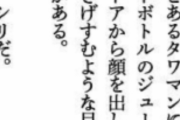 とあるタワマンに
トボトルのジュー
アから顔を出し
さげすむような目
がある。
ンリだ。